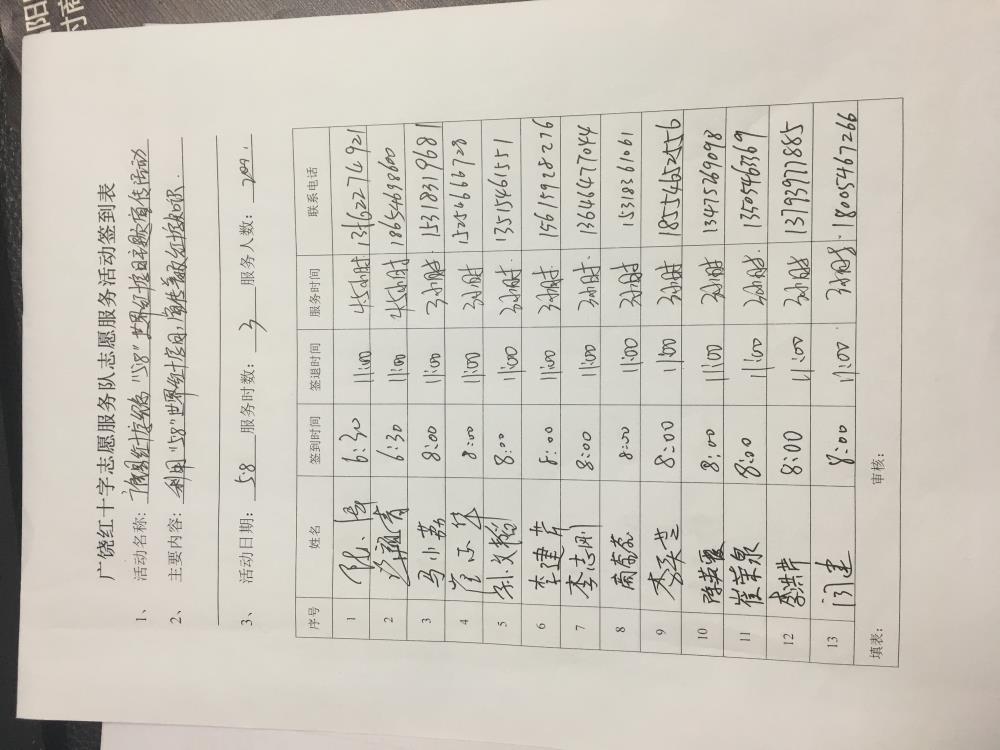 广饶红十字志愿服务队志愿服务活动签到表
1、 活动名称: "5.8"世界红十字日主题宣传活动
2、 主要内容: 利用"5.8"世界红十字日,宣传普及红十字知识.
3、 活动日期: 5.8 服务时数: 3 服务人数:
序号 姓名 签到时间 签退时间 服务时间 联系电话
1 6:30 11:00 4.5小时 13622274921
2 6:30 11:00 4.5小时 18654698600
3 马小荔 8:00 11:00 3小时 15318319681
4 8:00 11:00 3小时 15256666728
5 孙文翰 8:00 11:00 3小时. 13515461551
6 李建芹 8:00 11:00 3小时. 15615928276
7 李志刚 8:00 11:00 3小时. 13646477044
8 8:00 11:00 3小时 15318361061
9 8:00 11:00 3小时 18554652556
10 陈英霞 8:00 11:00 3小时. 13475569098
11 崔荣泉 8:00 11:00 3小时. 13505463369
12 李洪芹 8:00 11:00 3小时 13793977885
13 8:00 11:00 3小时. 18005467266
填表: 审核: